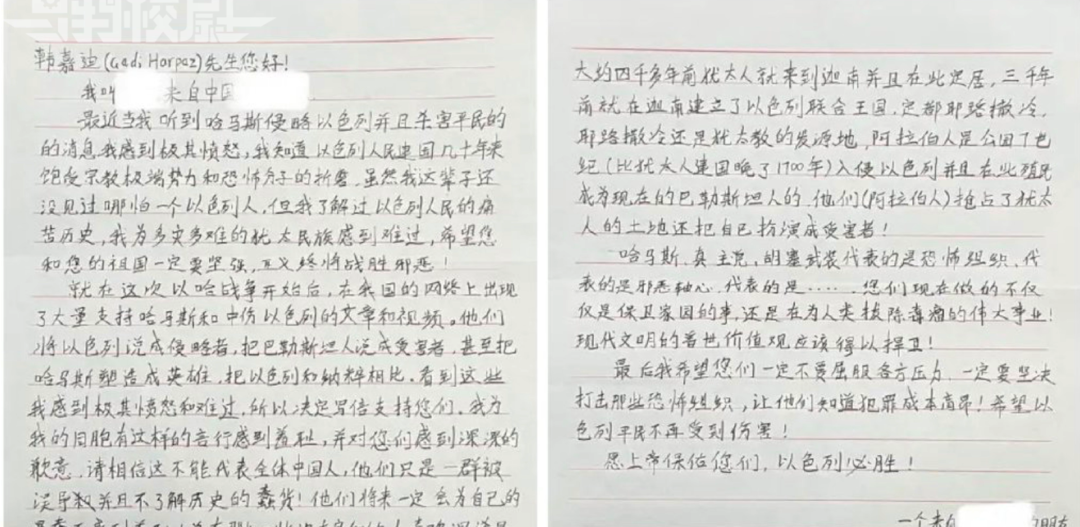 韩嘉迪(Gadi Harpaz)先生您好!
我叫 来自中国
最近当我听到哈马斯侵略以色列并且杀害平民的
的消息我感到极其愤怒,我知道以色列人民建国几十年来
饱受宗教极端势力和恐怖分子的折磨。虽然我这辈子还
没见过哪怕一个以色列人,但我了解过以色列人民的痛
苦历史,我为多灾多难的犹太民族感到难过,希望您
和您的祖国一定要坚强,正义终将战胜邪恶!
就在这次以哈战争开始后,在我国的网络上出现
了大量支持哈马斯和中伤以色列的文章和视频。他们
将以色列说成侵略者,把巴勒斯坦人说成受害者,甚至把
哈马斯塑造成英雄,把以色列和纳粹相比,看到这些
我感到极其愤怒和难过,所以决定写信支持您们。我为
我的同胞有这样的言行感到羞耻,并对您们感到深深的
歉意,请相信这不能代表全体中国人,他们只是一群被
误导教并且不了解历史的蠢货!他们将来一定会为自己的
大约四千多年前犹太人就来到迦南并且在此定居,三千年
前就在迦南建立了以色列联合王国,定都耶路撒冷,
耶路撒冷还是犹太教的发源地,阿拉伯人是公园7世
纪(比犹太人建国晚了1700年)入侵以色列并且在此殖民
成为现在的巴勒斯坦人的,他们(阿拉伯人)抢占了犹太
人的土地还把自己扮演成受害者!
哈马斯、真主党、胡塞武装代表的是恐怖组织、代
表的是邪恶轴心、代表的是……,您们现在做的不仅
仅是保卫家园的事,还是在为人类拔除毒瘤的伟大事业!
现代文明的普世价值观应该得以捍卫!
最后我希望您们一定不要屈服各方压力,一定要坚决
打击那些恐怖组织,让他们知道犯罪成本高昂!希望以
色列平民不再受到伤害!
愿上帝保佑您们,以色列必胜!
一个来自 的朋友